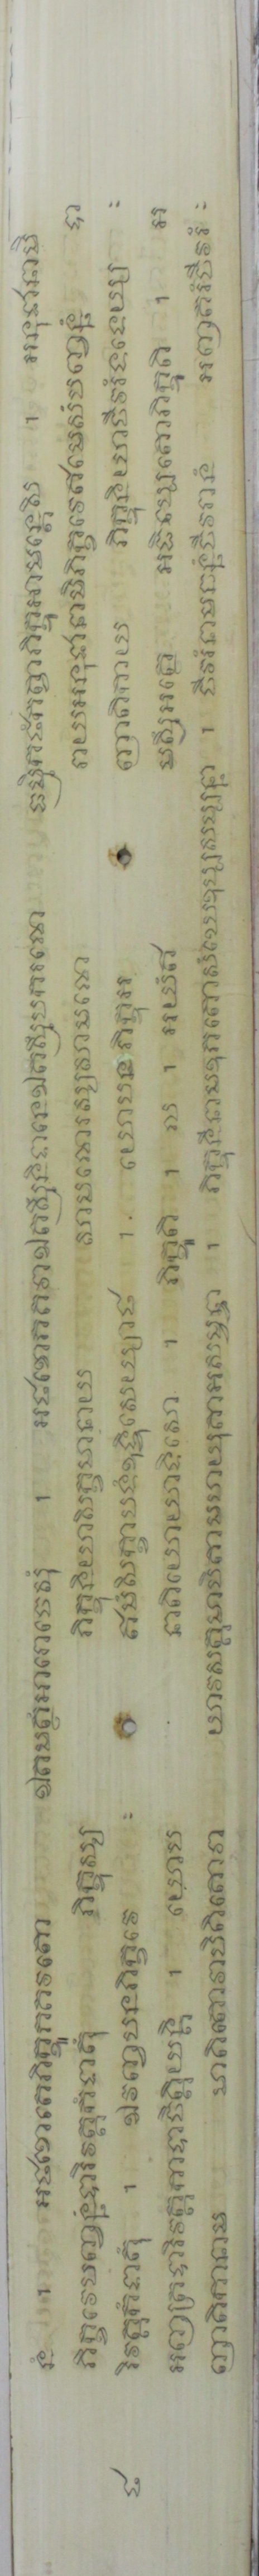 នំ ។ អថខោតេភិក្ខូភគវតោ ឯតមត្ថំអារោចេសុំ ។ អថខោភគវាឯតស្មឹនិទានេឯតស្មឹបករណេ ធម្មិកថំកត្វាភិក្ខូអាមន្តេសិ ។ អនុជានាមិ
ភិក្ខវេបញ្ចន្នំបារិវត្តកំទាតុំ ភិក្ខុស្ស ភិក្ខុនិយាសិក្ខមានាយ សាមណេរស្សសាមណេ រាយអនុជានាមិភិក្ខវេឥមេសំបញ្ចន្នំ បា
៤ រិវត្តកំទាតុំ ។ ឯវញ្ចបនភិក្ខវេ ឥមំសិក្ខាបទំឧទ្ទិសេយ្យាថ ។ យោបនភិក្ខុអ ញាតិកាយ ភិក្ខុនិយាចីវរំទទេយ្យ
អញត្របារិវត្តកាបាចិត្តិយន្តិ ។ យោប នាតិយោយាទិសោ ។ ភិក្ខូតិ ។ ល ។ អយំឥ មស្មឹអត្ថេ អធិប្បេតោភិក្ខូតិ ។ អ
ញាតិកានាម មាតិតោវាបិតិតោវា យាវសត្តមាបិតាមហាយុគាអសម្ពទ្ធា ។ ភិក្ខុនីនាមឧភតោសំឃេឧបសម្បន្នា ។ ចីវរំនាមឆន្នំចីវរានំ អញតរំចីវរំ